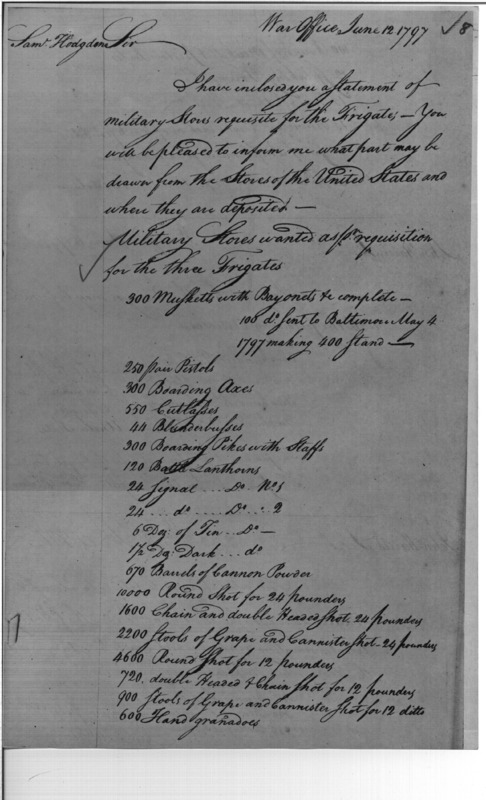 War Office June 12 1797
Saml. Hodgdon Sir
I have inclosed you a statement of
military Stores requisite for the Frigates, — You
will be pleased to inform me what part may be
drawn from the Stores of the United States and
where they are deposited —
Military Stores wanted as pr. requisition
for the three Frigates
300 Musketts with Bayonets &c complete —
100 do. sent to Baltimore May 4
1797 making 400 Stand —
250 pair Pistols
300 Boarding Axes
550 Cutlasses
44 Blunderbusses
300 Boarding Pikes with Staffs
120 Battle Lanthorns
24 Signal ... Do. No. 1
24 ... do ..... Do. .. 2
6 Doz: of Tin .. Do —
1½ Dz: Dark ... do
670 Barrels of Cannon Powder
10000 Round Shot for 24 pounders
1600 Chain and double Headed shot 24 pounders
2200 Stools of Grape and Cannister shot 24 pounders
4600 Round Shot for 12 pounders
720. double Headed & Chain shot for 12 pounders
900 Stools of Grape and Cannister Shot for 12 ditto
600 Hand granadoes